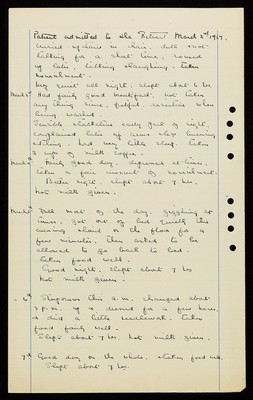 Patient admitted to the Retreat March 2nd 1917.
Carried upstairs in chair. Dull and not
talking for a short time, roused
up later, talking & laughing. Taken
nourishment.
Very quiet all night, slept about 6 hrs.
March 3rd Had fairly good breakfast, not taken
any thing since, fretful, resistive when
being washed.
Terrible shaking early part of night,
complained later of arms & legs burning
& itching, had very little sleep. Taken
2 cups of milk coffee.
March 4th Fairly good day, depressed at times.
taken a fair amount of nourishment.
Better night, slept about 7 hrs.
Hot milk given.
March 5th Dull most of the day. Giggling at
times. Got out of bed &
about on the floor for a
few minutes, then asked to be
allowed to go back to bed.
Taken food well.
Good night. Slept about 7 hrs
Hot milk given.
" 6th Stuporous this a.m. changed about
3 p.m. up & dressed for a few hours,
& did a little needlework. Taken
food fairly well.
Slept about 7 hrs. hot milk given.
" 7th Good day on the whole. taken food well.
Slept about 7 hrs.